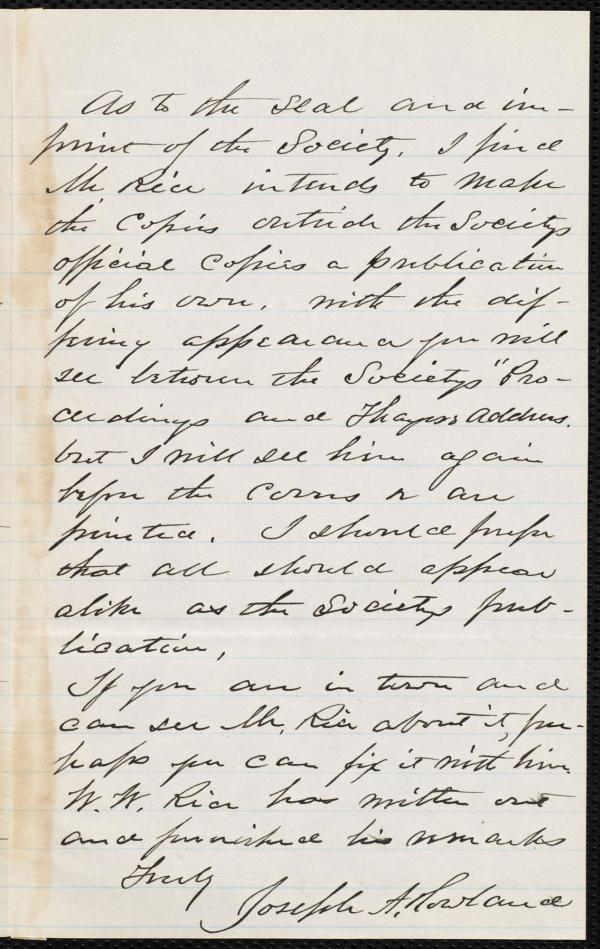 As to the seal and im-
print of the Society, I find
Mr Rice intends to make
the copies outside the Societys
official copies a publication
of his own, with the dif-
fering appearance you will
see between the Societys "Pro-
ceedings and Thayers Address.
but I will see him again
before the covers &c are
printed. I should prefer
that all should appear
alike as the Societys pub-
lication,
If you are in town and
can see Mr. Rice about it, per-
haps you can fix it with him.
W. W. Rice has written out
and furnished his remarks
Truly
Joseph A. Howland